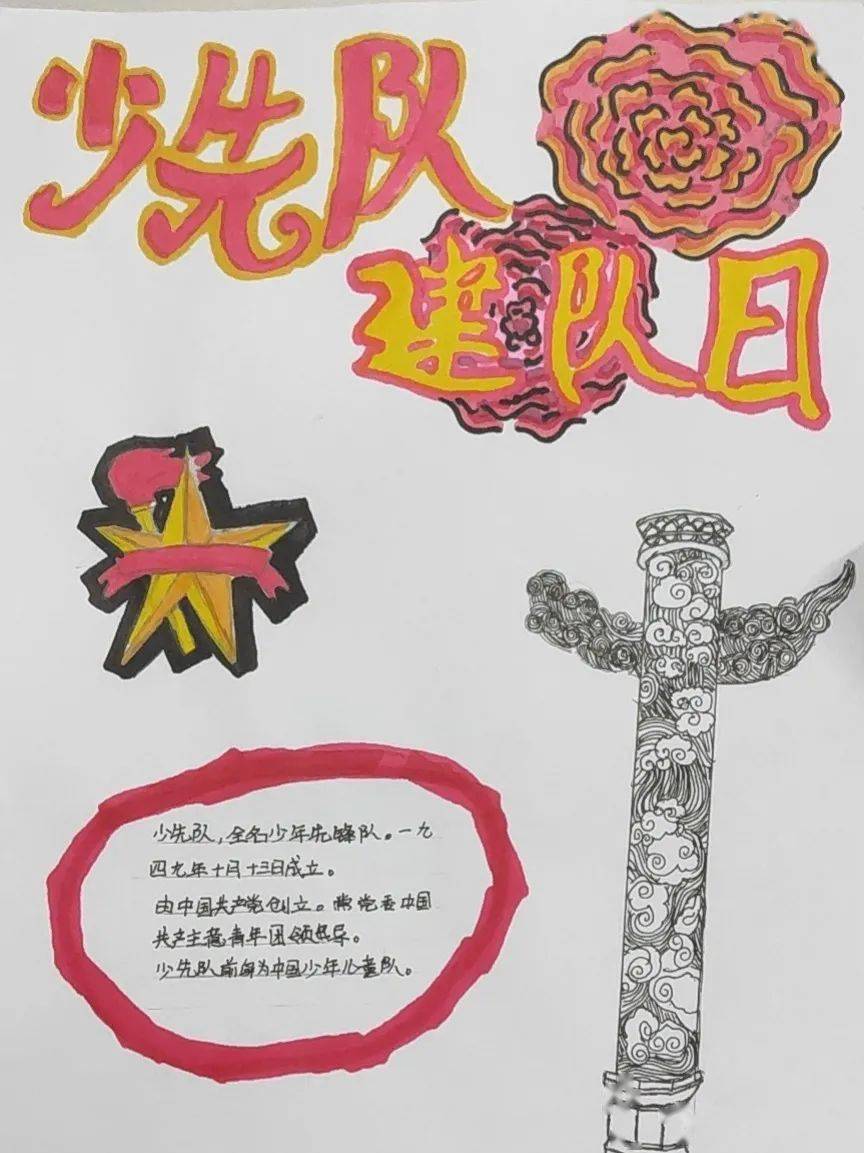 少先队
建队日
少先队,全名少年先锋队。一九
四九年十月十三日成立。
由中国共产党创立。党委中国
共产主义青年团领导。
少先队前身为中国少年儿童队。